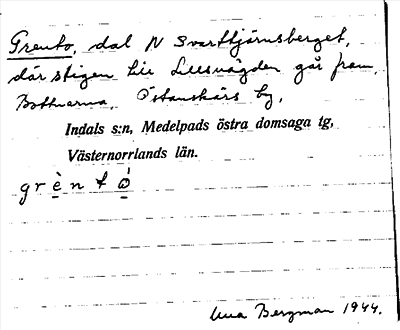 Grento, dal N Svarttjärnsberget,
där stigen till Lillsvägden går fram,
Bottnarna, Östanskärs by,
Indals s:n, Medelpads östra domsaga tg,
Västernorrlands län.
grènt
Bergman 1944.